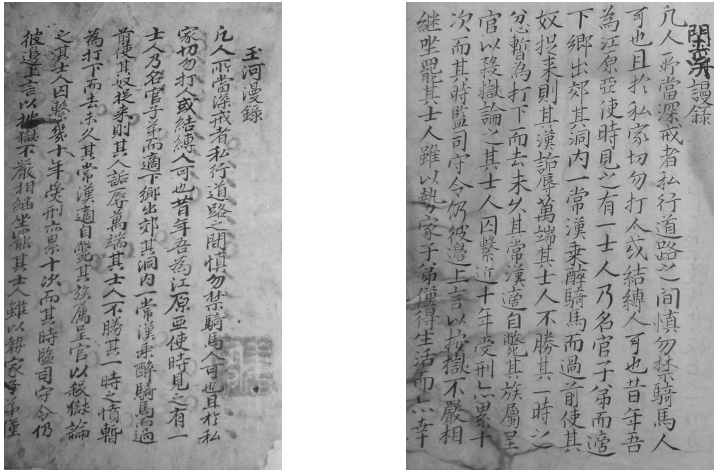 玉河漫錄
凡人所當深戒者私行道路之間慎勿禁騎馬人可也且於私
家切勿打人或結縛人可也昔年吾為江原亞使時見之有一
士人乃名官子弟而適下鄉出郊其洞内一常漢乘醉騎馬而過
前使其奴捉来則其人詬辱萬端其士人不勝其一時之憤暫
為打下而去未久其常漢適自斃其族屬呈官以殺獄論
之其士人囚繫幾十年受刑亦累十次而其時監司守令仍
彼邊上言以獄不嚴相継坐罷其士人雖以勢家子弟僅
閑謾錄
凡人所當深戒者私行道路之间慎勿禁騎馬人
可也且於私家切勿打人或結縛人可也昔年吾
為江原亞使時見之有一士人乃名官子弟而適
下鄉出郊其洞内一常漢乘醉騎馬而過前使其
奴捉来則其漢詬辱萬端其士人不勝其一時之
忿暫為打下而去未久其常漢適自斃其族屬呈
官以殺獄論之其士人囚繫近十年受刑亦累十
次而其時監司守令仍彼邊上言以按獄不嚴相
継坐罷其士人雖以勢家子弟僅得生活而亦幸